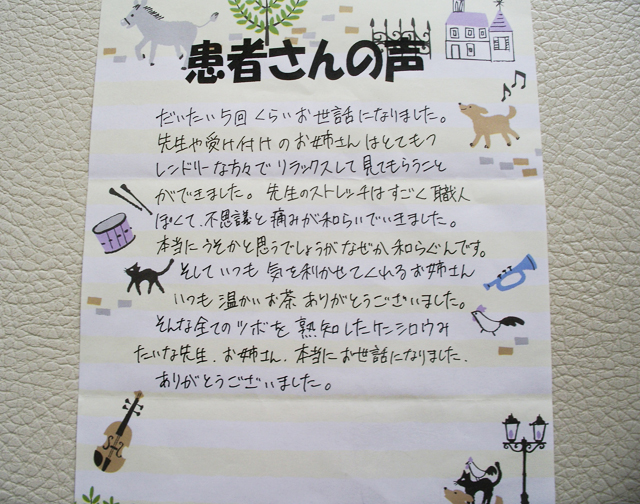 患者さんの声
だいたい5回くらいお世話になりました。
先生や受け付けのお姉さんはとてもフ
レンドリーな方々でリラックスして見てもらうこと
ができました。先生のストレッチはすごく職人
ぽくて、不思議と痛みが和らいでいきました。
本当にうそかと思うでしょうがなぜか和らぐんです。
そしていつも気を利かせてくれるお姉さん
いつも温かいお茶ありがとうございました。
そんな全てのツボを熟知したケンシロウみ
たいな先生、お姉さん、本当にお世話になりました、
ありがとうございました。